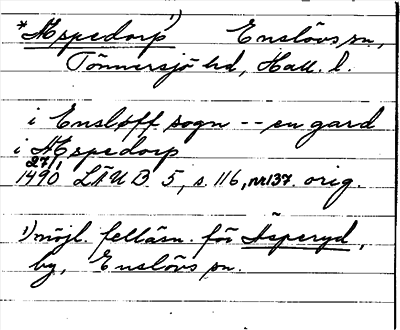 *Æspedorp 1) Enslövs sn,
Tönnersjö hd, Hall. l.
i Ensløff sogn -- en gard
i Æspedorp
27/1
1490 LÄU B 5, s. 116, nr 137. orig.
1) möjl. felläsn. för Äsperyd,
by, Enslövs sn.